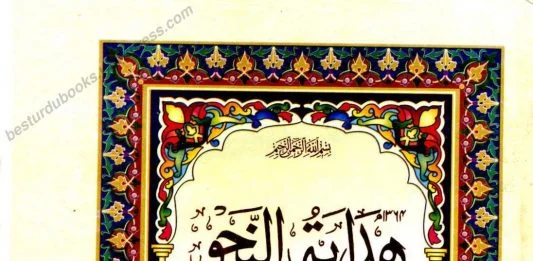 besturdubooks.wordpress.com
بسم الله الرحمن الرحيم
هداية النحو